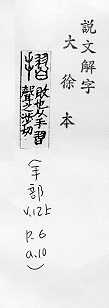 説文解字
大徐本
摺 敗也从手習
聲之涉切
(手部
v.12上
p.6
a.10)